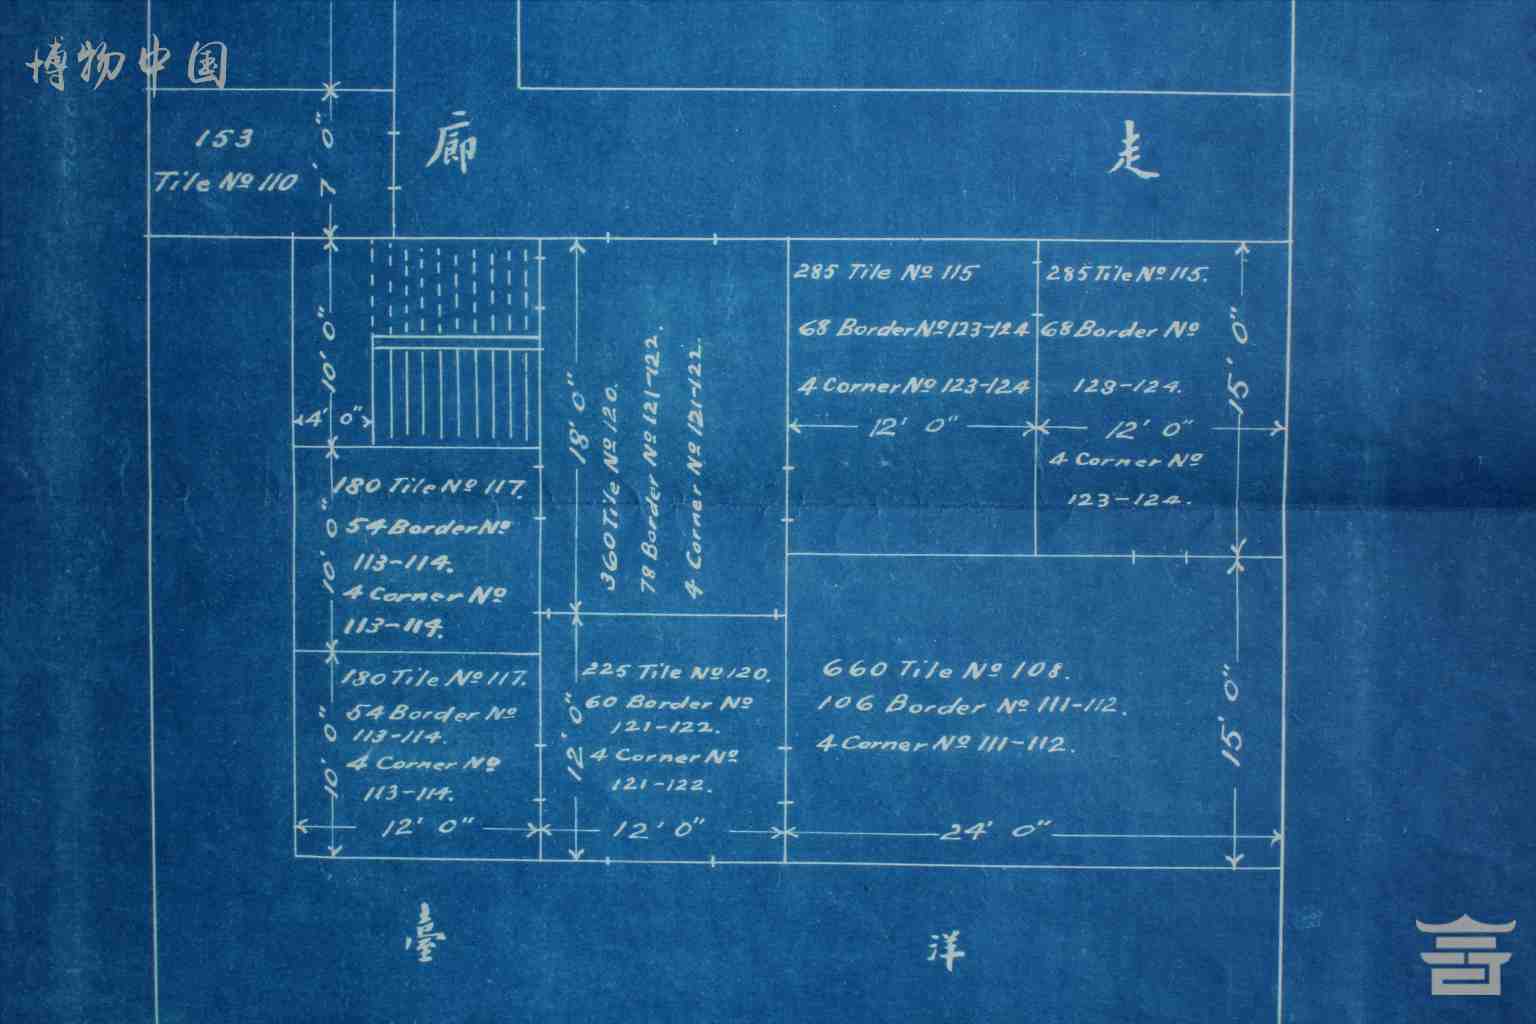 博物中国
153
Tile Nº 110
7' 0"
廊
走
10' 0"
4' 0"
18' 0"
360 Tile Nº 120.
78 Border Nº 121-122.
4 Corner Nº 121-122.
285 Tile Nº 115
68 Border Nº 123-124
4 Corner Nº 123-124
12' 0"
285 Tile Nº 115.
68 Border Nº
123-124.
12' 0"
4 Corner Nº
123-124.
15' 0"
180 Tile Nº 117.
54 Border Nº
113-114.
4 Corner Nº
113-114.
10' 0"
180 Tile Nº 117.
54 Border Nº
113-114.
4 Corner Nº
113-114.
10' 0"
12' 0"
225 Tile Nº 120.
60 Border Nº
121-122.
4 Corner Nº
121-122.
12' 0"
12' 0"
660 Tile Nº 108.
106 Border Nº 111-112.
4 Corner Nº 111-112.
15' 0"
24' 0"
臺
洋